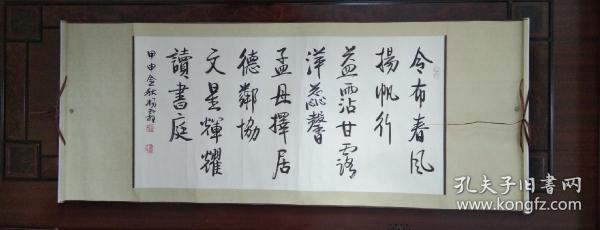 令布春风
揚帆行
益霑甘露
洋蕊馨
孟母擇居
德鄰協
文星輝耀
讀書庭
甲申金秋
孔夫子旧书网
www.kongfz.com